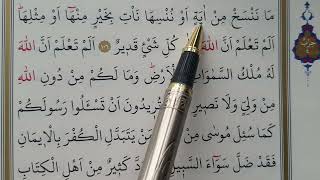 مَا نَنْسَخْ مِنْ اٰيَةٍ اَوْ نُنْسِهَا نَأْتِ بِخَيْرٍ مِنْهَٓا اَوْ مِثْلِهَا
اَلَمْ تَعْلَمْ اَنَّ اللّٰهَ كُلِّ شَيْءٍ قَدِيرٌ ١٠٦ اَلَمْ تَعْلَمْ اَنَّ اللّٰهَ
لَهُ مُلْكُ السَّمٰوَاتِ وَمَا لَكُمْ مِنْ دُونِ اللّٰهِ
مِنْ وَلِيٍّ وَلَا نَصِيرٍ اَنْ تَسْـَٔلُوا رَسُولَكُمْ
كَمَا سُئِلَ مُوسٰى مِنْ مَنْ يَتَبَدَّلِ الْكُفْرَ بِالْاِيمَانِ
فَقَدْ ضَلَّ سَوَٓاءَ كَثِيرٌ مِنْ اَهْلِ الْكِتَابِ